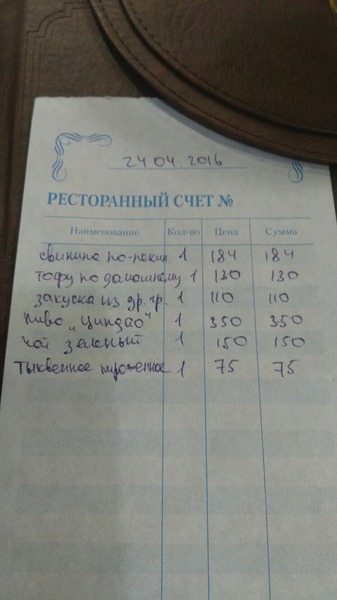 24.04.2016
РЕСТОРАННЫЙ СЧЕТ №
Наименование Кол-во Цена Сумма
свинина по-пекин 1 184 184
тофу по домашнему 1 130 130
закуска из др. гр. 1 110 110
пиво "Циндао" 1 350 350
чай зеленый 1 150 150
тыквенное пирожное 1 75 75